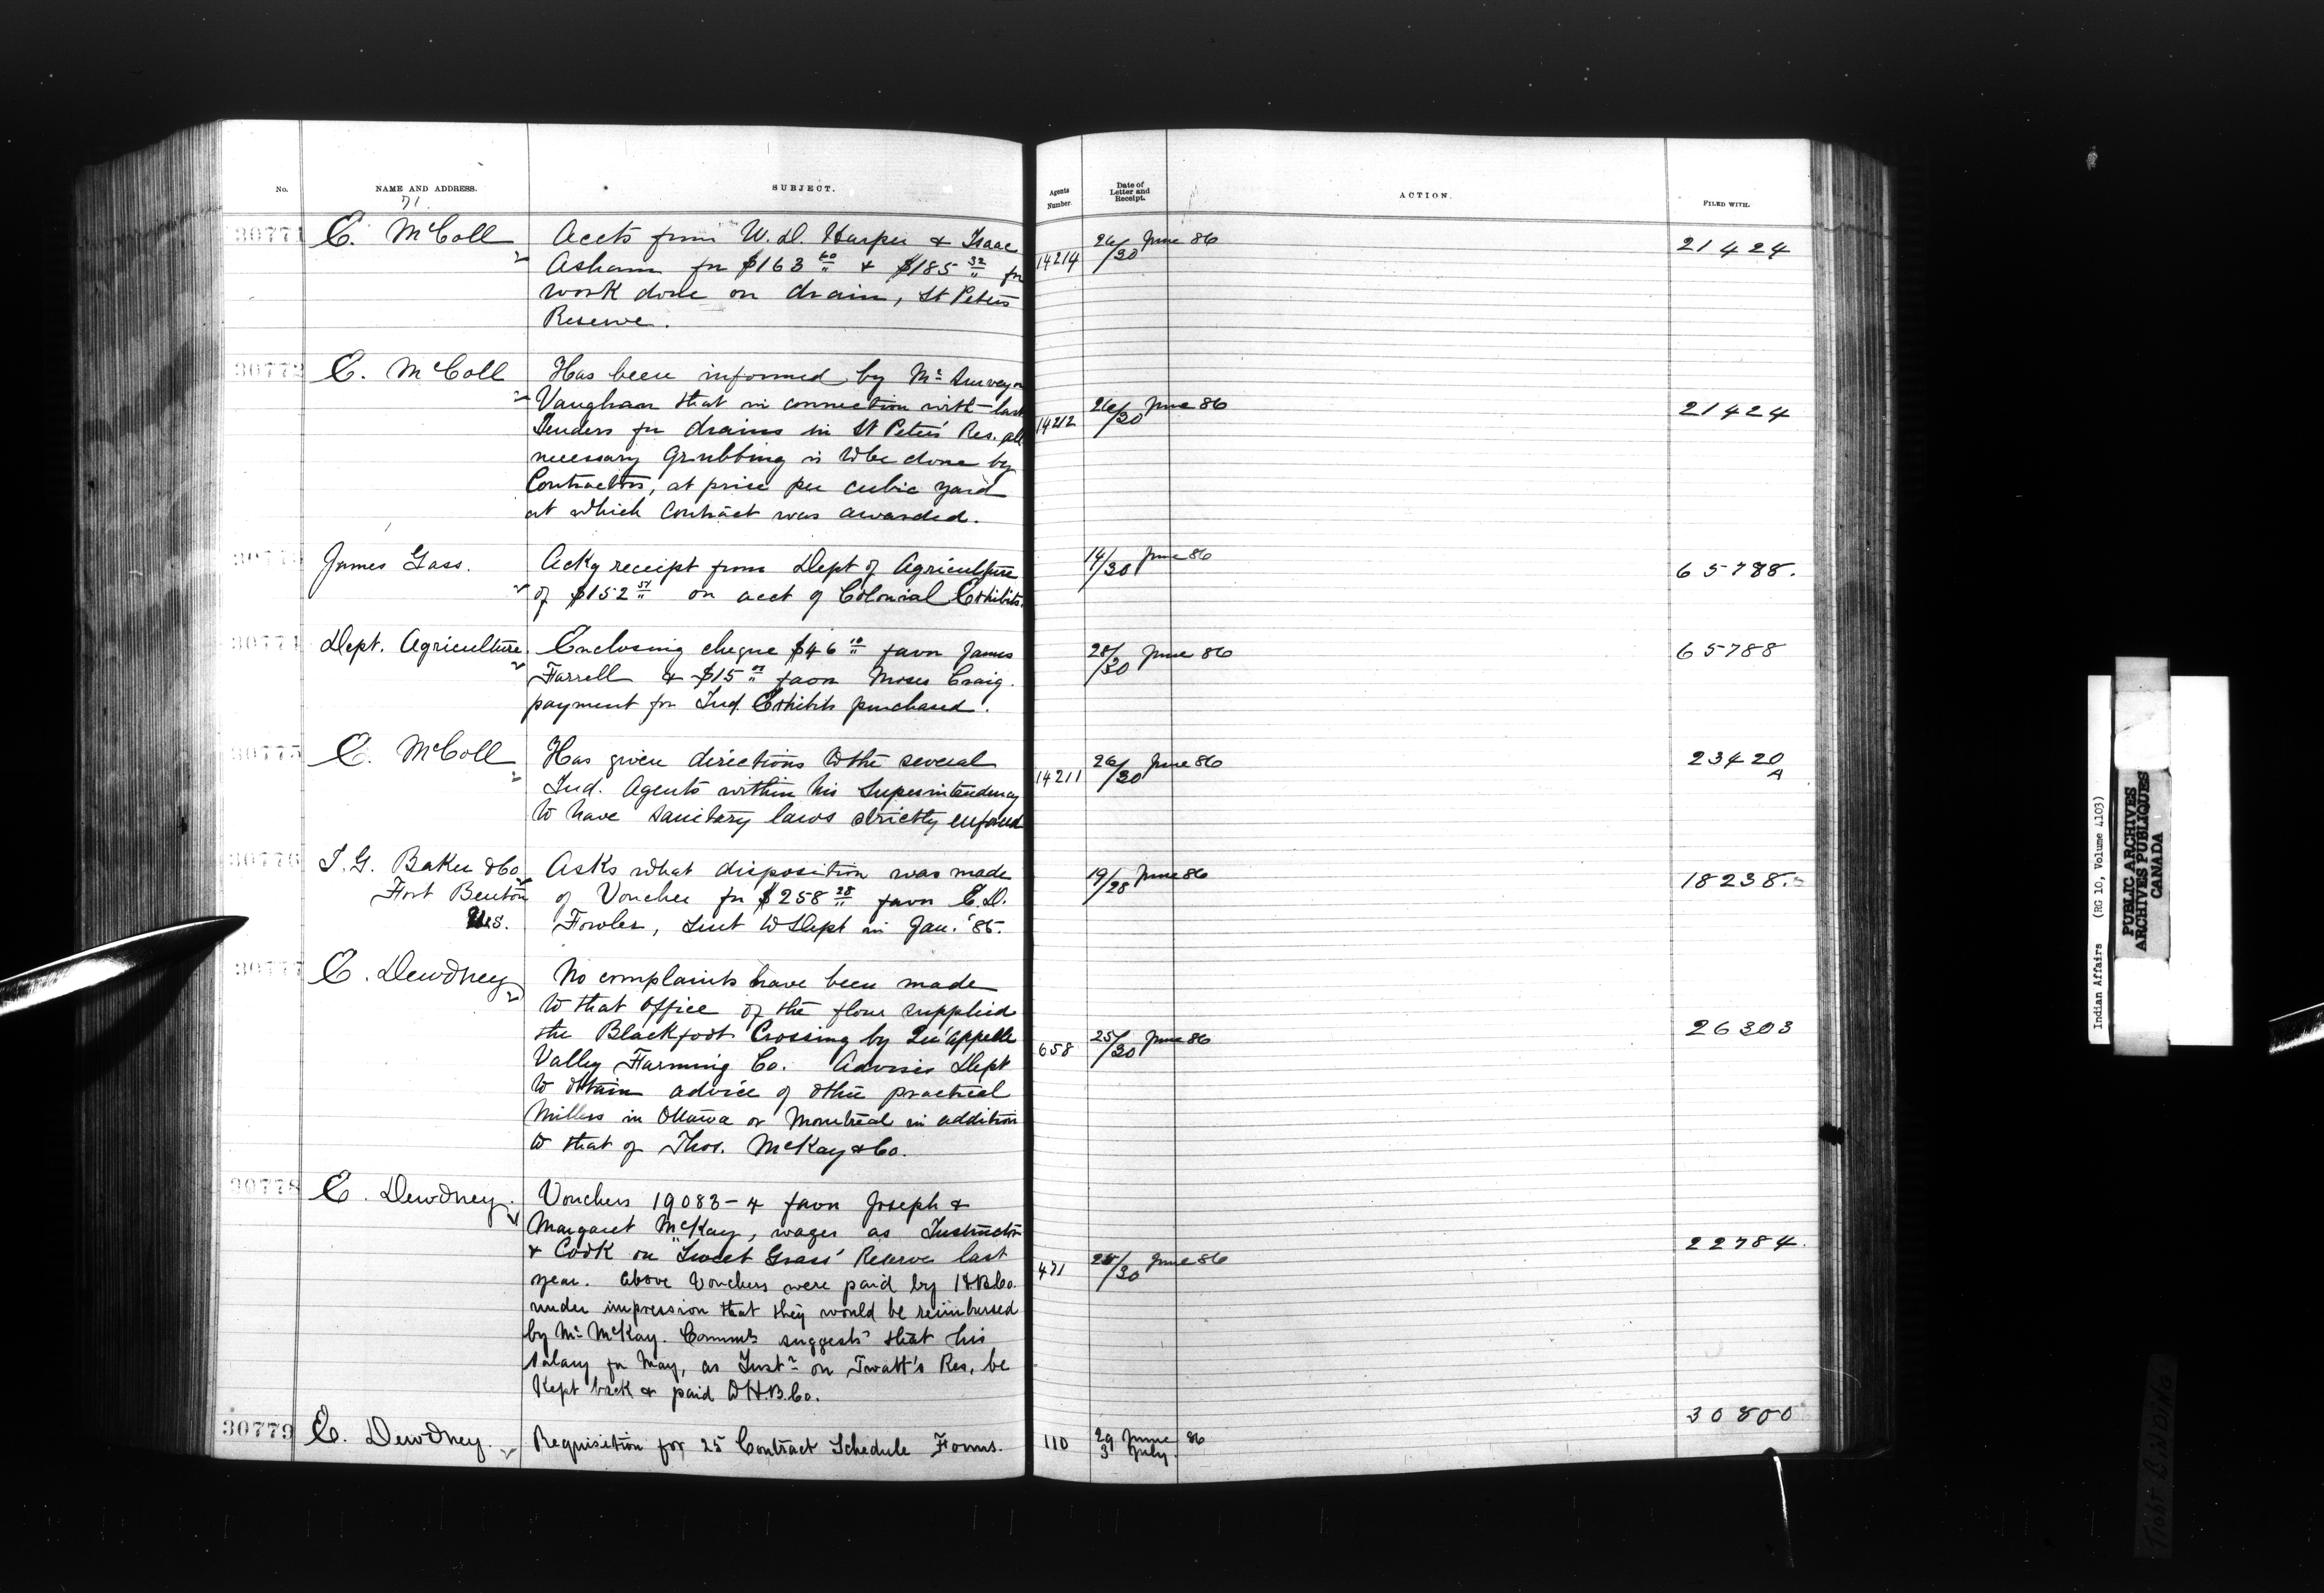 No.
NAME AND ADDRESS.
71.
SUBJECT.
Agents Number.
Date of Letter and Receipt.
ACTION.
FILED WITH.
30771 E. McColl Accts from W. D. Harper & Isaac
Asham for $163 60 & $185 32 for
work done on drain, St Peters
Reserve.
14214 26/30 June 86 21424
30772 E. McColl Has been informed by Mr Surveyor
Vaughan that in connection with last
Tenders for drains in St Peters' Res. all
necessary Grubbing is to be done by
Contractors, at price per cubic yard
at which Contract was awarded.
14212 26/30 June 86 21424
30773 James Gass. Ackg receipt from Dept of Agriculture
of $152 51 on acct of Colonial Exhibits.
14/30 June 86 65788.
30774 Dept. Agriculture Enclosing cheque $46 10 favor James
Farrell & $15 favor Moses Craig.
payment for Ind. Exhibits purchased.
28/30 June 86 65788
30775 E. McColl Has given directions to the several
Ind. Agents within his Superintendency
to have sanitary laws strictly enforced
14211 26/30 June 86 23420 A
30776 I. G. Baker & Co Asks what disposition was made
Fort Benton of Voucher for $258 28 favor E. D.
U.S. Fowler, sent to Dept in Jan. '85.
19/28 June 86 18238.
30777 E. Dewdney No complaints have been made
to that Office of the flour supplied
the Blackfoot Crossing by Qu'appelle
Valley Farming Co. Advises Dept
to obtain advice of other practical
Millers in Ottawa or Montreal in addition
to that of Thos. McKay & Co.
658 25/30 June 86 26303
30778 E. Dewdney. Vouchers 19083-4 favor Joseph &
Margaret McKay, wages as Instructor
& Cook on "Sweet Grass' Reserve last
year. Above Vouchers were paid by H.B.Co.
under impression that they would be reimbursed
by Mr McKay. Commr suggests that his
salary for May, as Instr on Twatt's Res. be
Kept back & paid to H.B.Co.
471 25/30 June 86 22784.
30779 E. Dewdney. Requisition for 25 Contract Schedule Forms.
110 29 June 86
3 July.
30800
Indian Affairs (RG 10, Volume 4103)
PUBLIC ARCHIVES
ARCHIVES PUBLIQUES
CANADA
Tight Binding